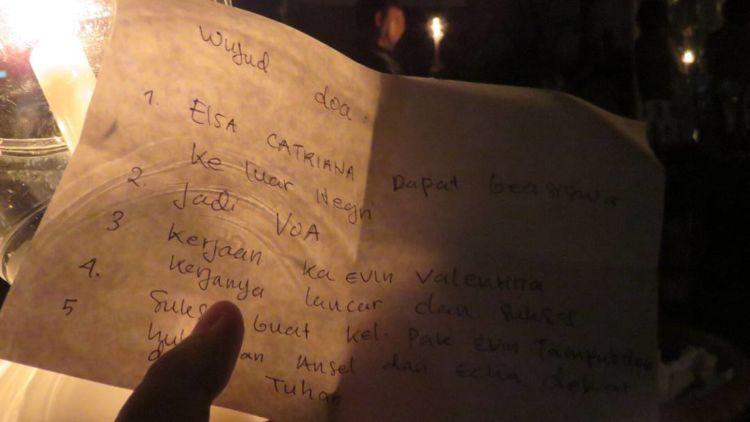 Wujud doa :
1. ElSA CATRIANA Dapat beasiswa
Ke luar Negri
2. Jadi VOA
3 Kerjaan ka Evin Valentina
4. Kerjanya lancar dan sukses
5 Sukses buat kel. Pak Evin
dan Ansel dan Echa dekat
Tuhan